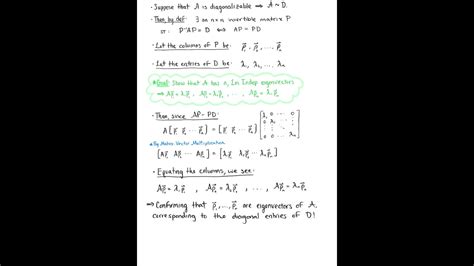 • Suppose that A is diagonalizable ⟹ A ~ D.
• Then, by def: ∃ an n×n invertible matrix P
st: P⁻¹AP = D ⟺ AP = PD
• Let the columns of P be: p⃗₁, p⃗₂, ..., p⃗ₙ
• Let the entries of D be: λ₁, λ₂, ..., λₙ
*Goal: Show that A has n, Lin Indep eigenvectors
⟹ Ap⃗₁ = λ₁p⃗₁, ..., Ap⃗ₙ = λₙp⃗ₙ
• Then, since AP = PD
A[p⃗₁ p⃗₂ ... p⃗ₙ] = [p⃗₁ p⃗₂ ... p⃗ₙ] [λ₁ 0 ... 0
*By Matrix-Vector Multiplication
[Ap⃗₁ Ap⃗₂ ... Ap⃗ₙ] = [λ₁p⃗₁ λ₂p⃗₂ ... λₙp⃗ₙ]
• Equating the columns, we see:
Ap⃗₁ = λ₁p⃗₁, Ap⃗₂ = λ₂p⃗₂, ..., Ap⃗ₙ = λₙp⃗ₙ
⟹ Confirming that p⃗₁, ..., p⃗ₙ are eigenvectors of A
corresponding to the diagonal entries of D!